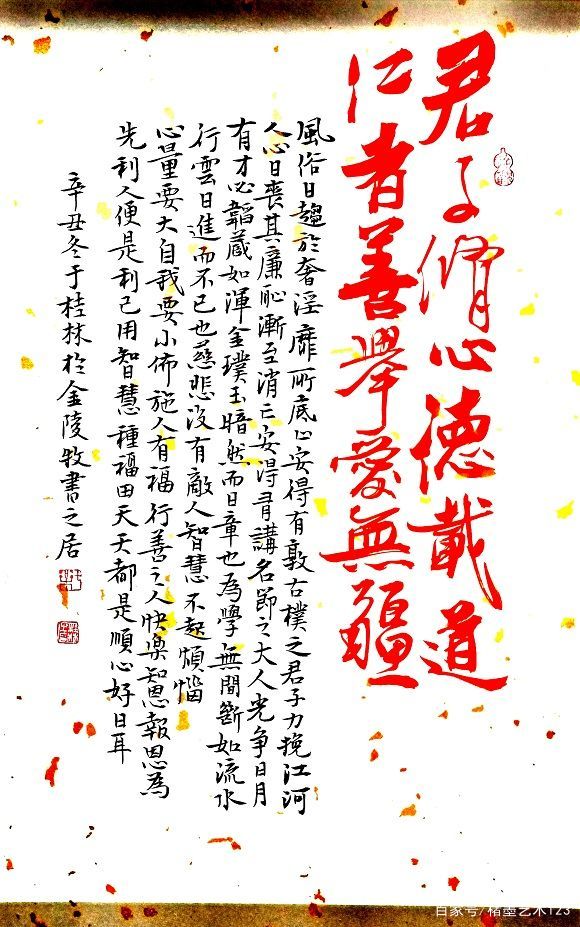 君子脩心德載道
仁者善舉愛無疆
風俗日趨於奢淫靡所底止安得有敦古樸之君子力挽江河
人心日喪其廉恥漸至消亡安得有講名節之大人光争日月
有才必韜藏如渾金璞玉暗然而日章也為學無間斷如流水
行雲日進而不已也慈悲没有敵人智慧不起煩惱
心量要大自我要小佈施人有福行善之人快樂知恩報恩為
先利人便是利己用智慧種福田天天都是順心好日耳
辛丑冬于桂林於金陵牧書之居
百家号/楮墨艺术123